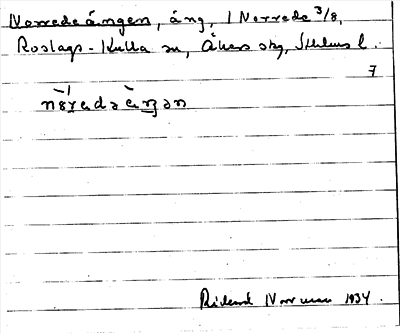 Norredeängen, äng, Norrede 3/8,
Roslags-Kulla sn, Åkers skg, Sthlms l.
7
Rickard Norrman 1934.